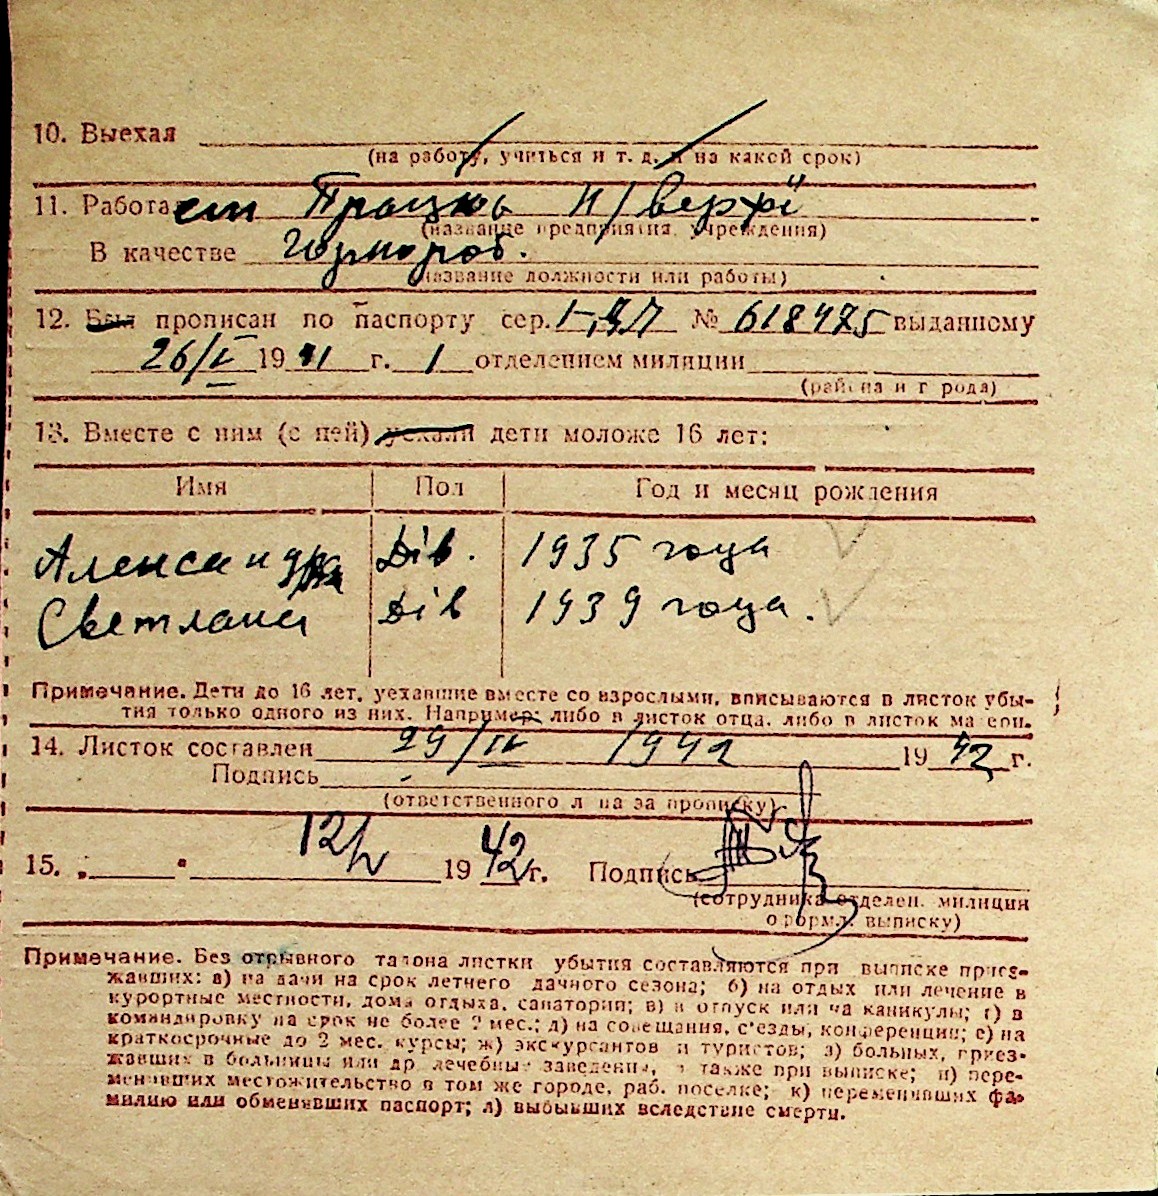 10. Выехал
(на работу, учиться и т. д. и на какой срок)
11. Работает Працює н/верхі
(название предприятия, учреждения)
В качестве чорнороб.
(название должности или работы)
12. Был прописан по паспорту сер. № 618475 выданному
26/ 19 41 г. 1 отделением милиции
(района и города)
13. Вместе с ним (с ней) уехали дети моложе 16 лет:
Имя Пол Год и месяц рождения
Александра Дів. 1935 года
Светлана Дів 1939 года.
Примечание. Дети до 16 лет, уехавшие вместе со взрослыми, вписываются в листок убы-
тия только одного из них. Например: либо в листок отца, либо в листок матери.
14. Листок составлен 29/IV 1942 19 42 г.
Подпись
(ответственного лица за прописку)
15. „ " 12/V 19 42 г. Подпись
(сотрудника отделен. милиции
оформл. выписку)
Примечание. Без отрывного талона листки убытия составляются при выписке приез-
жавших: а) на дачи на срок летнего дачного сезона; б) на отдых или лечение в
курортные местности, дома отдыха, санатории; в) в отпуск или на каникулы; г) в
командировку на срок не более 2 мес.; д) на совещания, с'езды, конференции; е) на
краткосрочные до 2 мес. курсы; ж) экскурсантов и туристов; з) больных, приез-
жавших в больницы или др. лечебные заведения, а также при выписке; и) пере-
менивших местожительство в том же городе, раб. поселке; к) переменивших фа-
милию или обменявших паспорт; л) выбывших вследствие смерти.